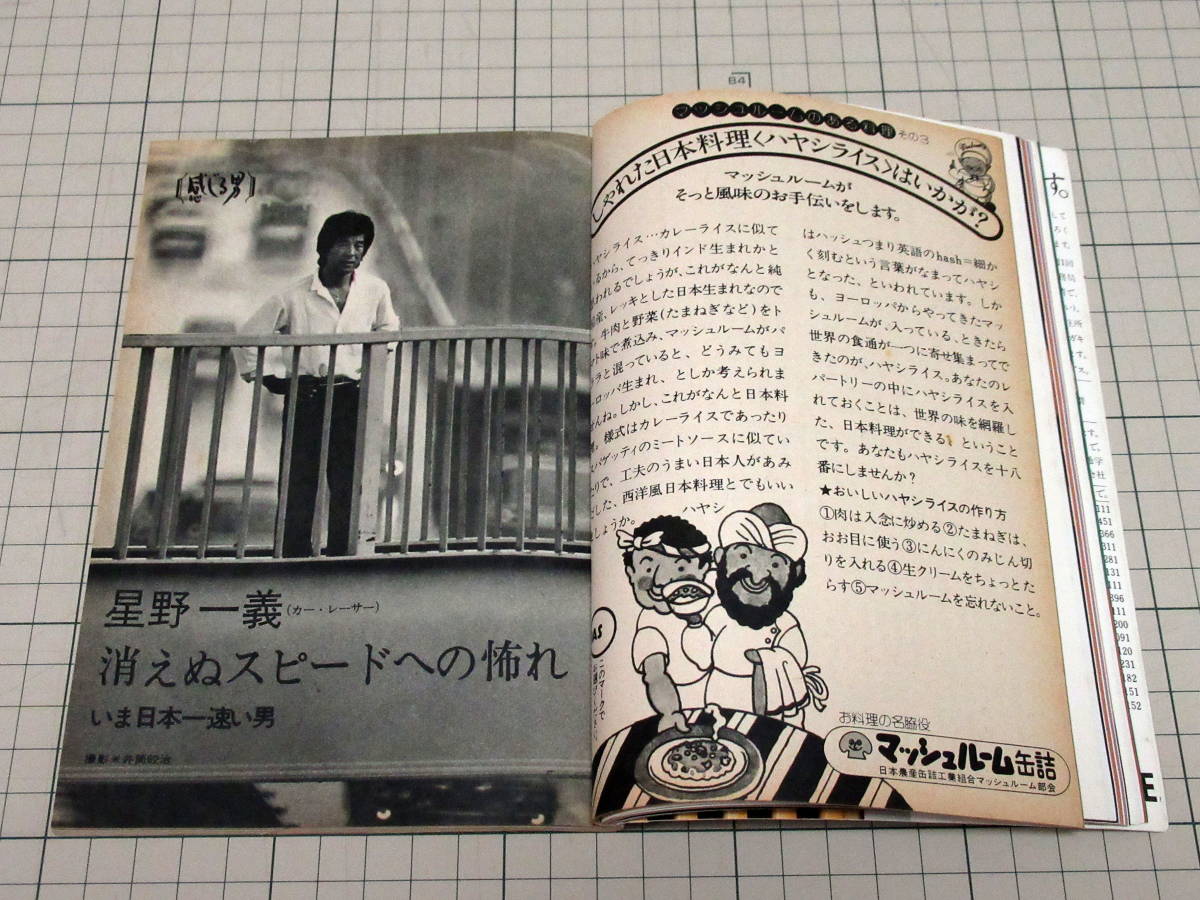 B4
《感じる男》
星野一義(カー・レーサー)
消えぬスピードへの怖れ
いま日本一速い男
マッシュルームのある料理 その3
しゃれた日本料理〈ハヤシライス〉はいかが?
マッシュルームが
そっと風味のお手伝いをします。
ハヤシライス…カレーライスに似て
いるから、てっきりインド生まれかと
思われるでしょうが、これがなんと純
国産、レッキとした日本生まれなので
牛肉と野菜(たまねぎなど)をト
マト味で煮込み、マッシュルームがパ
ラパラと混っていると、どうみてもヨ
ーロッパ生まれ、としか考えられま
せんね。しかし、これがなんと日本料
様式はカレーライスであったり
スパゲッティのミートソースに似てい
たりで、工夫のうまい日本人があみ
だした、西洋風日本料理とでもいい
ましょうか。 ハヤシ
はハッシュつまり英語のhash=細か
く刻むという言葉がなまってハヤシ
となった、といわれています。しか
も、ヨーロッパからやってきたマッ
シュルームが、入っている、ときたら
世界の食通が一つに寄せ集まってで
きたのが、ハヤシライス。あなたのレ
パートリーの中にハヤシライスを入
れておくことは、世界の味を網羅し
た、日本料理ができる、ということ
です。あなたもハヤシライスを十八
番にしませんか?
★おいしいハヤシライスの作り方
①肉は入念に炒める②たまねぎは、
おお目に使う③にんにくのみじん切
りを入れる④生クリームをちょっとた
らす⑤マッシュルームを忘れないこと。
このマークで
お料理の名脇役
マッシュルーム缶詰
日本農産缶詰工業組合マッシュルーム部会
す。
111
451
366
311
281
131
111
396
111
200
091
120
231
182
152
E.